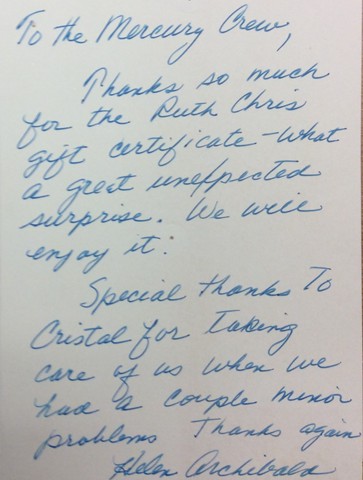 To the Mercury Crew,
Thanks so much
for the Ruth Chris
gift certificate - what
a great unexpected
surprise. We will
enjoy it.
Special thanks To
Cristal for Taking
care of us when we
had a couple minor
problems Thanks again
Helen Archibald